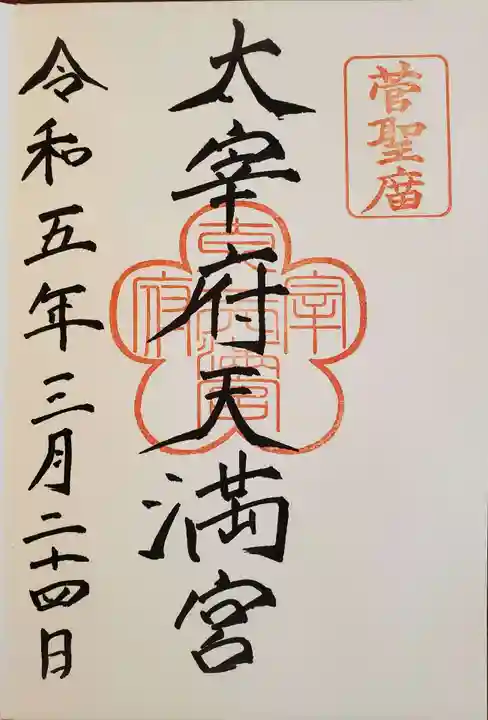 菅聖庿
太宰府天満宮
令和五年三月二十四日